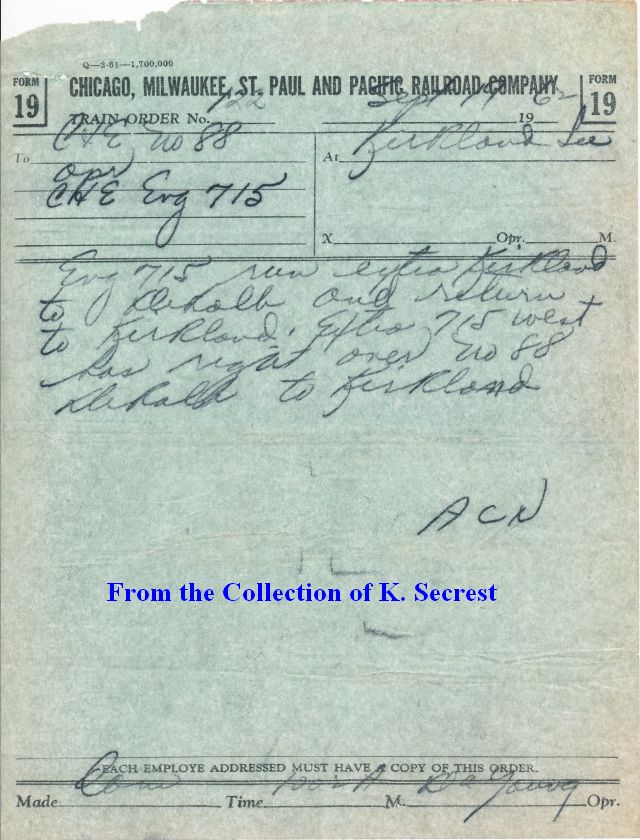 Q—2-61—1,700,000
FORM 19
CHICAGO, MILWAUKEE, ST. PAUL AND PACIFIC RAILROAD COMPANY
FORM 19
TRAIN ORDER No. 122 Sept 19 62
To C&E No 88 At Kirkland Ill
opr
C&E Eng 715
X Opr. M.
Eng 715 run extra Kirkland
to Dekalb and return
to Kirkland. Extra 715 west
has right over No 88
Dekalb to Kirkland
ACN
From the Collection of K. Secrest
EACH EMPLOYE ADDRESSED MUST HAVE A COPY OF THIS ORDER.
Made Com Time M. De Young Opr.